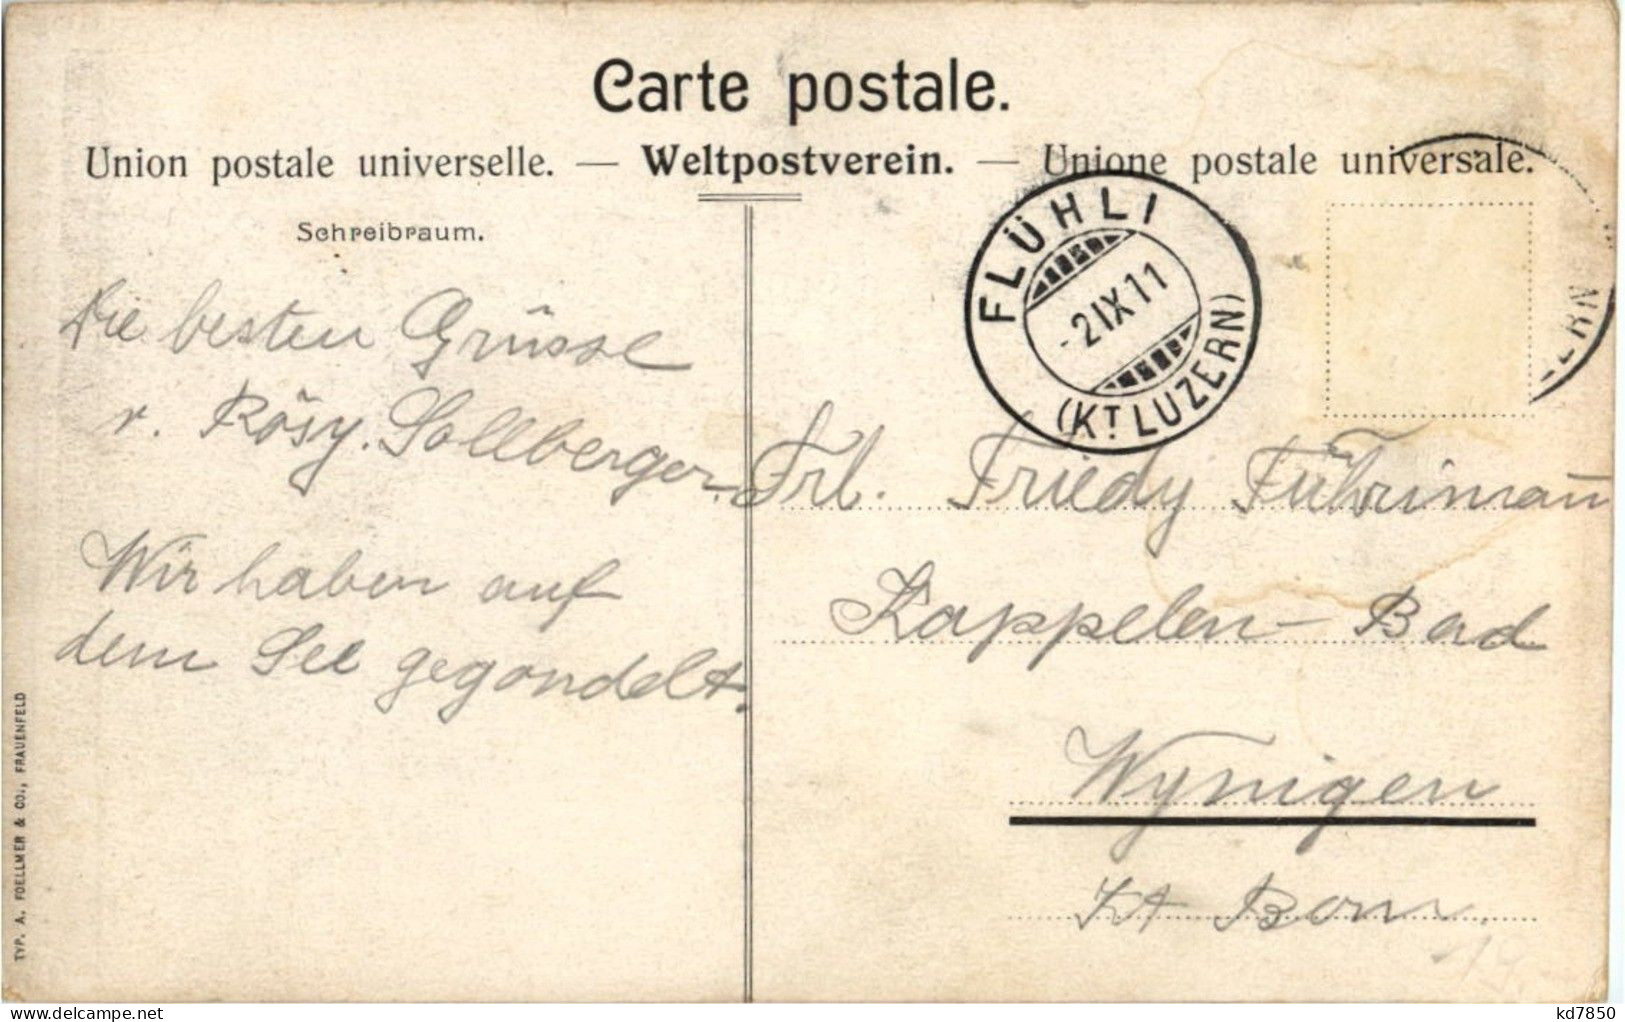 Carte postale.
Union postale universelle. — Weltpostverein. — Unione postale universale.
Schreibraum.
Die besten Grüsse
v. Rösy. Sollberger.
Wir haben auf
dem See gegondelt.
FLÜHLI
-2 IX 11
(KT LUZERN)
ERN
Frl. Friedy Führiman
Kappelen-Bad
Wynigen
Kt Bern.
TYP. A. FOELLMER & CO., FRAUENFELD
delcampe.net
kd7850